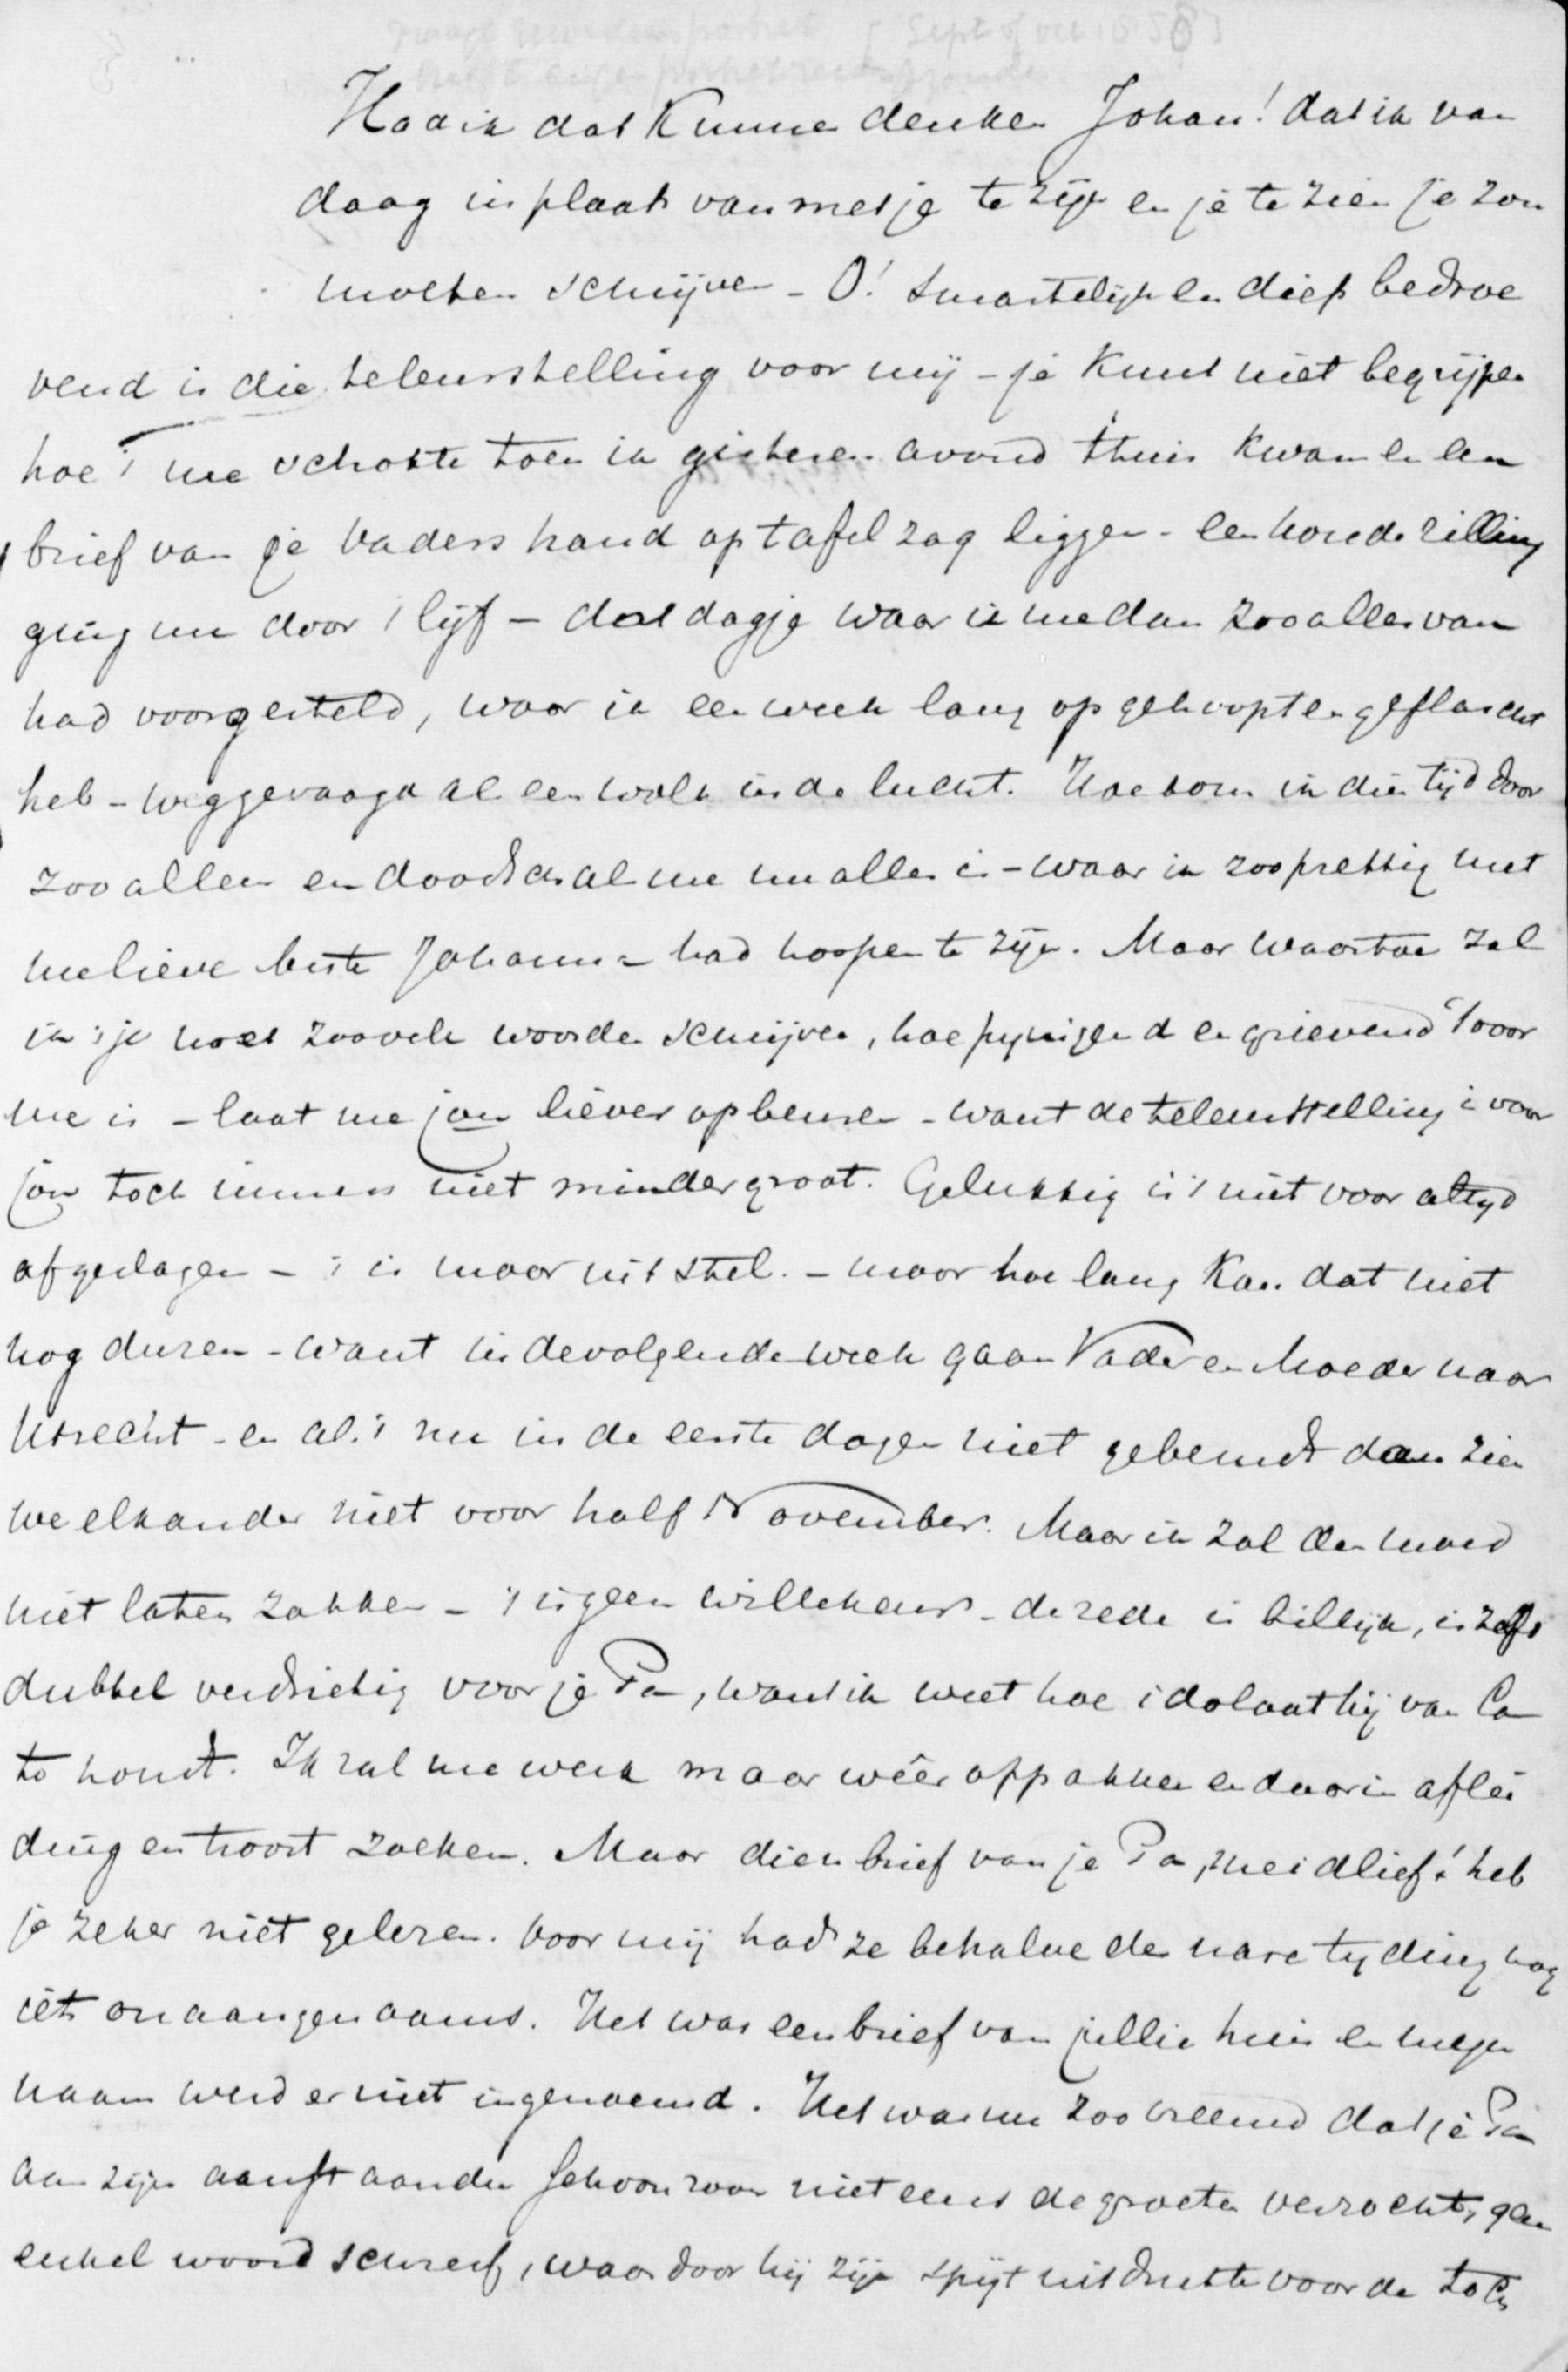 [Sept of oct 1858]
Had ik dat kunnen denken Johan! dat ik van
daag in plaats van met je te zijn en je te zien je zou
moeten schrijven - O! smartelijk en diep bedroe
vend is die teleurstelling voor mij - je kunt niet begrijpen
hoe 't me schokte toen ik gisteren avond thuis kwam en een
brief van je vaders hand op tafel zag liggen - een koude rilling
ging me door 't lijf - dat dagje waar ik me dan zoo alles van
had voorgesteld, waar ik een week lang op gehoopt en geflascht
heb - weggevaagd als een wolk in de lucht. Hoe kom ik dien tijd door
zoo alleen en doodsch als me nu alles is - waar ik zoo prettig met
me lieve beste Johanna had hoopen te zijn. Maar waartoe zal
ik 't je met zooveele woorden schrijven, hoe pynigend en grievend 't voor
me is - laat me jou liever opbeuren - want de teleurstelling is voor
jou toch immers niet minder groot. Gelukkig is 't niet voor altyd
afgeslagen - 't is maar uitstel. - maar hoe lang kan dat niet
nog duren - want in de volgende week gaan Vader en Moeder naar
Utrecht - en als 't nu in de eerste dagen niet gebeurdt dan zien
we elkander niet voor half November. Maar ik zal den moed
niet laten zakken - 't is geen willekeur - de rede is billijk, is zelfs
dubbel verdrietig voor je Pa, want ik weet hoe idolaat hij van Ca
to houdt. Ik zal me werk maar wêer oppakken en daarin aflei
ding en troost zoeken. Maar dien brief van je Pa, meidlief! heb
je zeker niet gelezen. Voor mij had ze behalve de nare tyding nog
iets onaangenaams. Het was een brief van jullie huis en uwen
naam werd er niet in genoemd. Het was me zoo vreemd dat je Pa
aan zijn aanstaanden schoonzoon niet eens de groeten verzocht, geen
enkel woord schreef, waardoor hij zijn spijt uitdrukte voor de